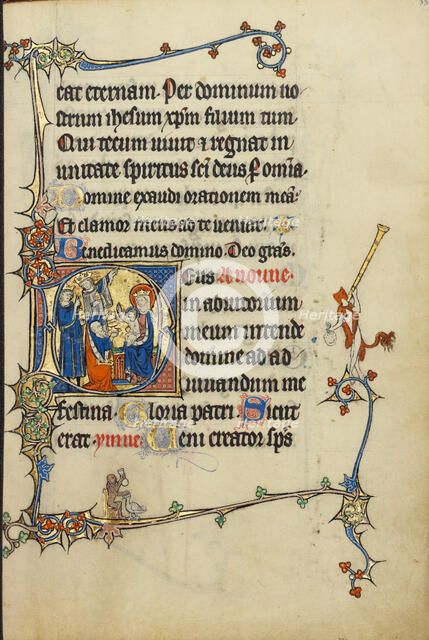 eat eternam. Per dominum no
strum ihesum xpm filium tuum.
Qui tecum uiuit et regnat in
unitate spiritus sci deus P omia
Domine exaudi orationem mea
Et clamor meus ad te ueniat.
Benedicamus domino. Deo gras.
Deus A nonne.
in adiutorium
meum intende
domine ad ad
iuuandum me
festina. Gloria patri. Sicut
erat. ymne. Ueni creator sps
Heritage
Heritage
Heritage
Heritage